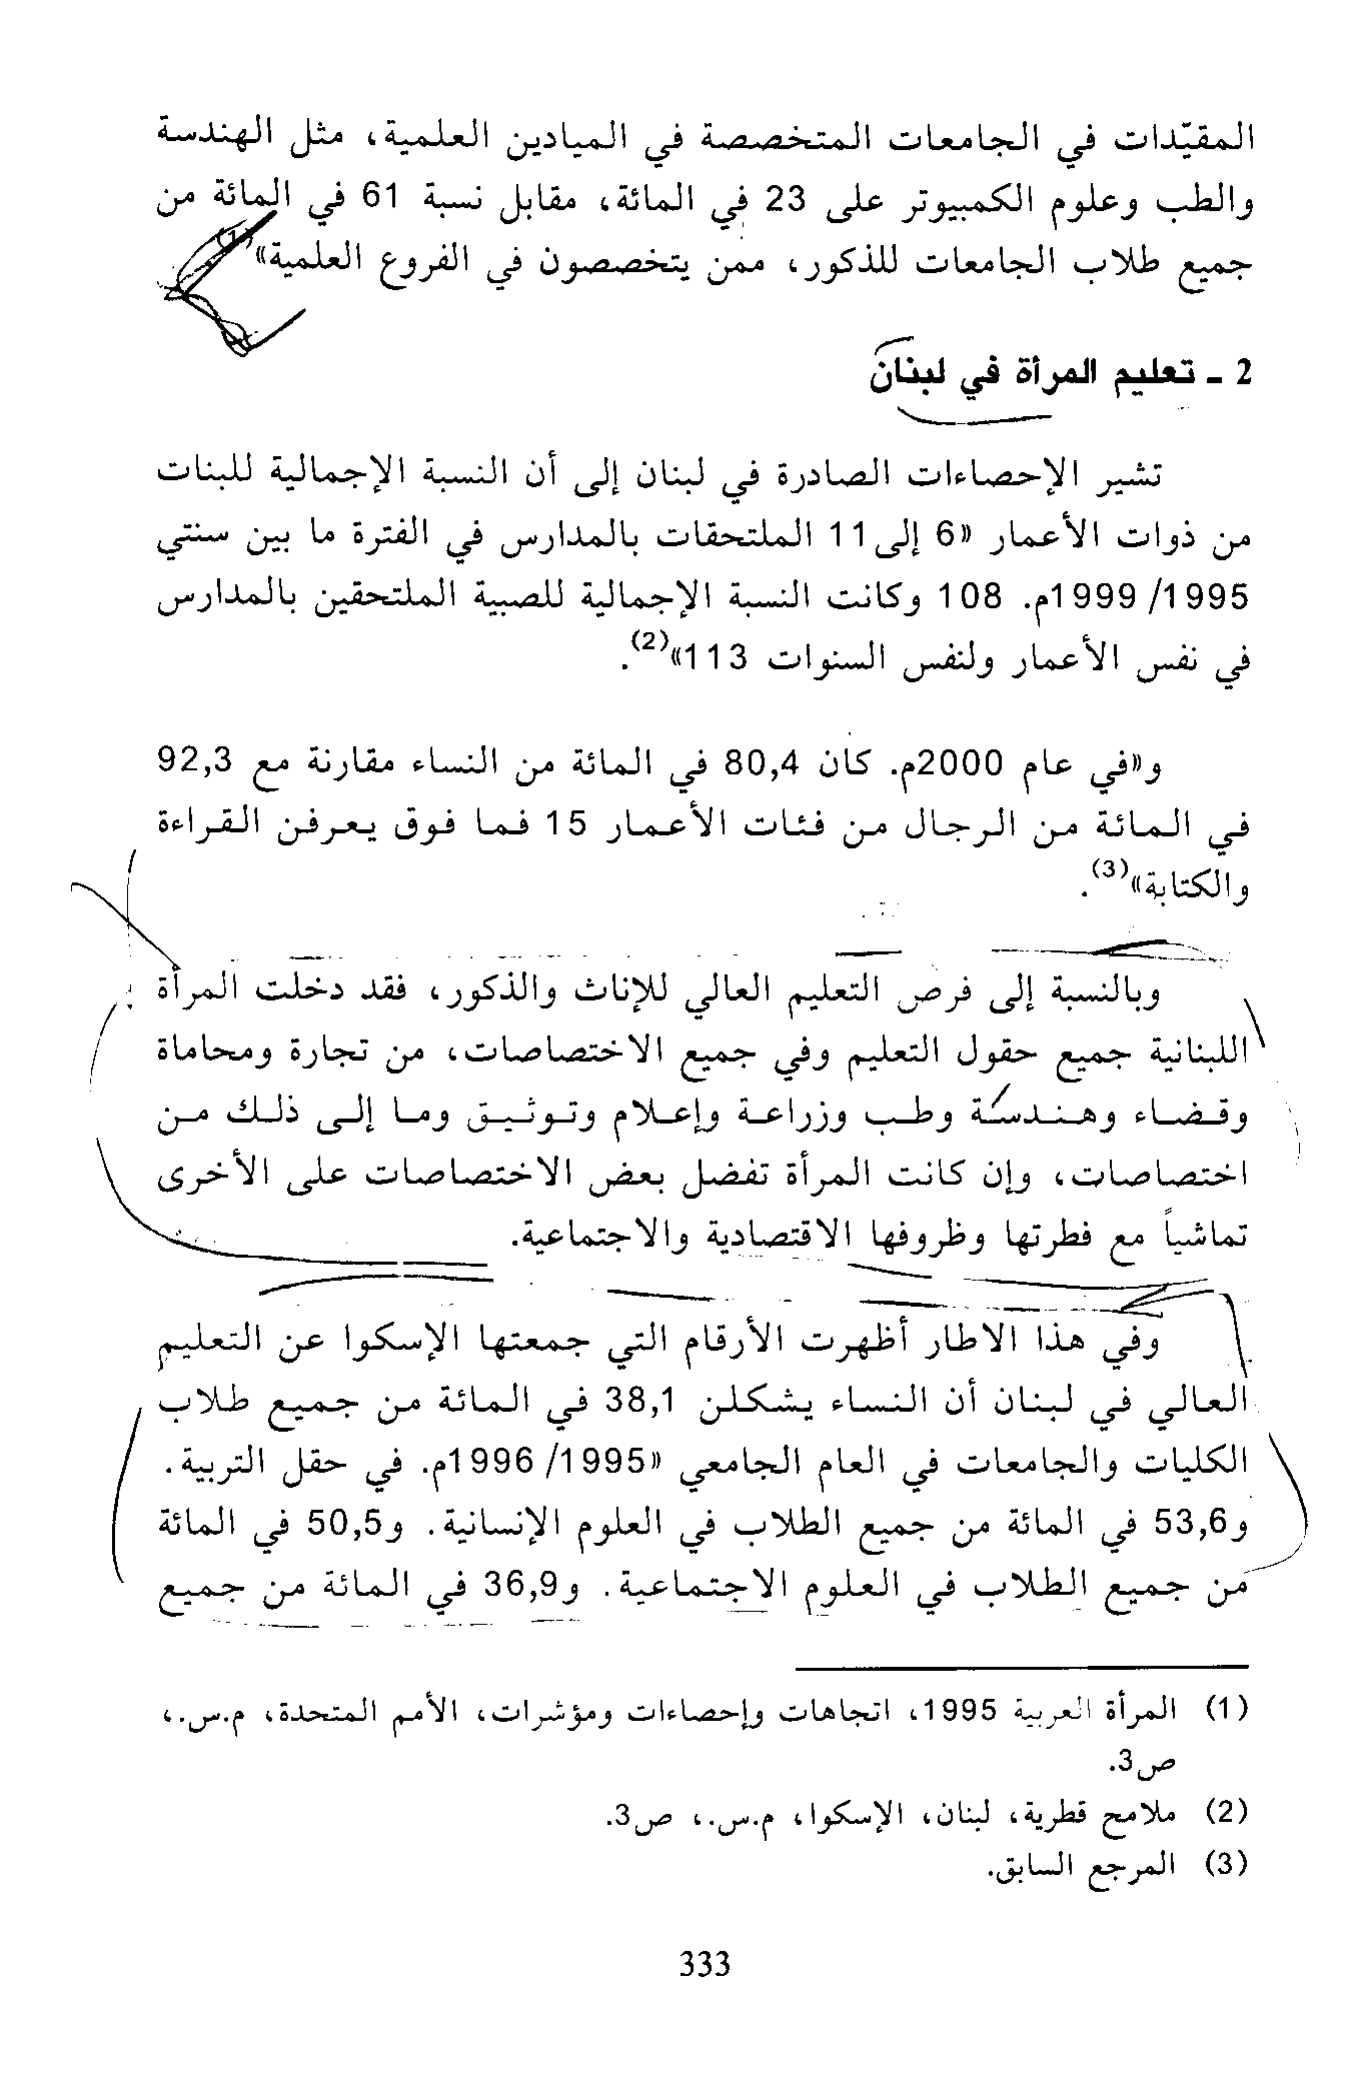 المقيّدات في الجامعات المتخصصة في الميادين العلمية، مثل الهندسة
والطب وعلوم الكمبيوتر على 23 في المائة، مقابل نسبة 61 في المائة من
جميع طلاب الجامعات للذكور، ممن يتخصصون في الفروع العلمية»(1)
2 ـ تعليم المرأة في لبنان
تشير الإحصاءات الصادرة في لبنان إلى أن النسبة الإجمالية للبنات
من ذوات الأعمار «6 إلى 11 الملتحقات بالمدارس في الفترة ما بين سنتي
1995/ 1999م. 108 وكانت النسبة الإجمالية للصبية الملتحقين بالمدارس
في نفس الأعمار ولنفس السنوات 113»(2).
و«في عام 2000م. كان 80,4 في المائة من النساء مقارنة مع 92,3
في المائة من الرجال من فئات الأعمار 15 فما فوق يعرفن القراءة
والكتابة»(3).
وبالنسبة إلى فرص التعليم العالي للإناث والذكور، فقد دخلت المرأة
اللبنانية جميع حقول التعليم وفي جميع الاختصاصات، من تجارة ومحاماة
وقضاء وهندسة وطب وزراعة وإعلام وتوثيق وما إلى ذلك من
اختصاصات، وإن كانت المرأة تفضل بعض الاختصاصات على الأخرى
تماشياً مع فطرتها وظروفها الاقتصادية والاجتماعية.
وفي هذا الاطار أظهرت الأرقام التي جمعتها الإسكوا عن التعليم
العالي في لبنان أن النساء يشكلن 38,1 في المائة من جميع طلاب
الكليات والجامعات في العام الجامعي «1995/ 1996م. في حقل التربية.
و53,6 في المائة من جميع الطلاب في العلوم الإنسانية. و50,5 في المائة
من جميع الطلاب في العلوم الاجتماعية. و36,9 في المائة من جميع
(1) المرأة العربية 1995، اتجاهات وإحصاءات ومؤشرات، الأمم المتحدة، م.س.،
ص3.
(2) ملامح قطرية، لبنان، الإسكوا، م.س.، ص3.
(3) المرجع السابق.
333